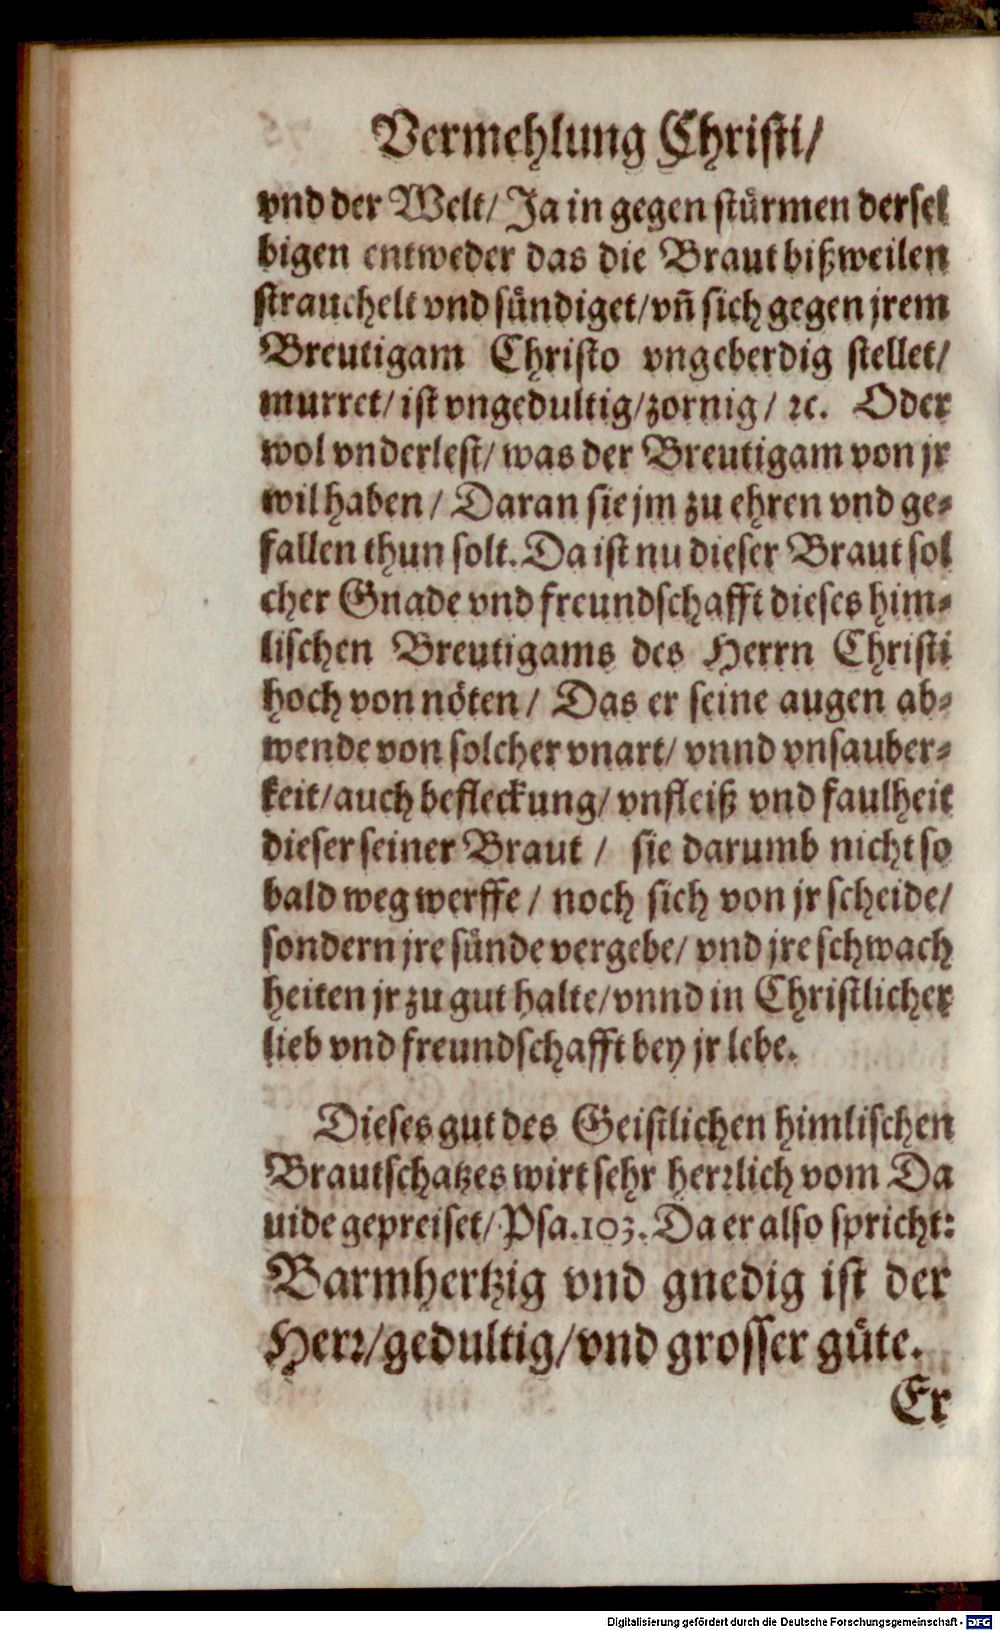 Vermehlung Christi/
vnd der Welt/ Ja in gegen stürmen dersel
bigen entweder das die Braut bißweilen
strauchelt vnd sündiget/ vñ sich gegen jrem
Breutigam Christo vngeberdig stellet/
murret/ ist vngedultig/ zornig/ ꝛc. Oder
wol vnderlest/ was der Breutigam von jr
wil haben/ Daran sie jm zu ehren vnd ge-
fallen thun solt. Da ist nu dieser Braut sol
cher Gnade vnd freundschafft dieses him-
lischen Breutigams des Herrn Christi
hoch von nöten/ Das er seine augen ab-
wende von solcher vnart/ vnnd vnsauber-
keit/ auch befleckung/ vnfleiß vnd faulheit
dieser seiner Braut / sie darumb nicht so
bald weg werffe/ noch sich von jr scheide/
sondern jre sünde vergebe/ vnd jre schwach
heiten jr zu gut halte/ vnnd in Christlicher
lieb vnd freundschafft bey jr lebe.
Dieses gut des Geistlichen himlischen
Brautschatzes wirt sehr herꝛlich vom Da
uide gepreiset/ Psa.103. Da er also spricht:
Barmhertzig vnd gnedig ist der
Herꝛ/ gedultig/ vnd grosser güte.
Er
Digitalisierung gefördert durch die Deutsche Forschungsgemeinschaft - DFG